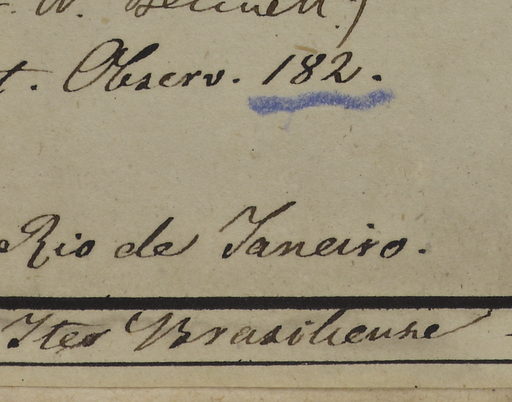 W. Bennett)
t. Observ. 182.
Rio de Janeiro.
Iter Brasiliense